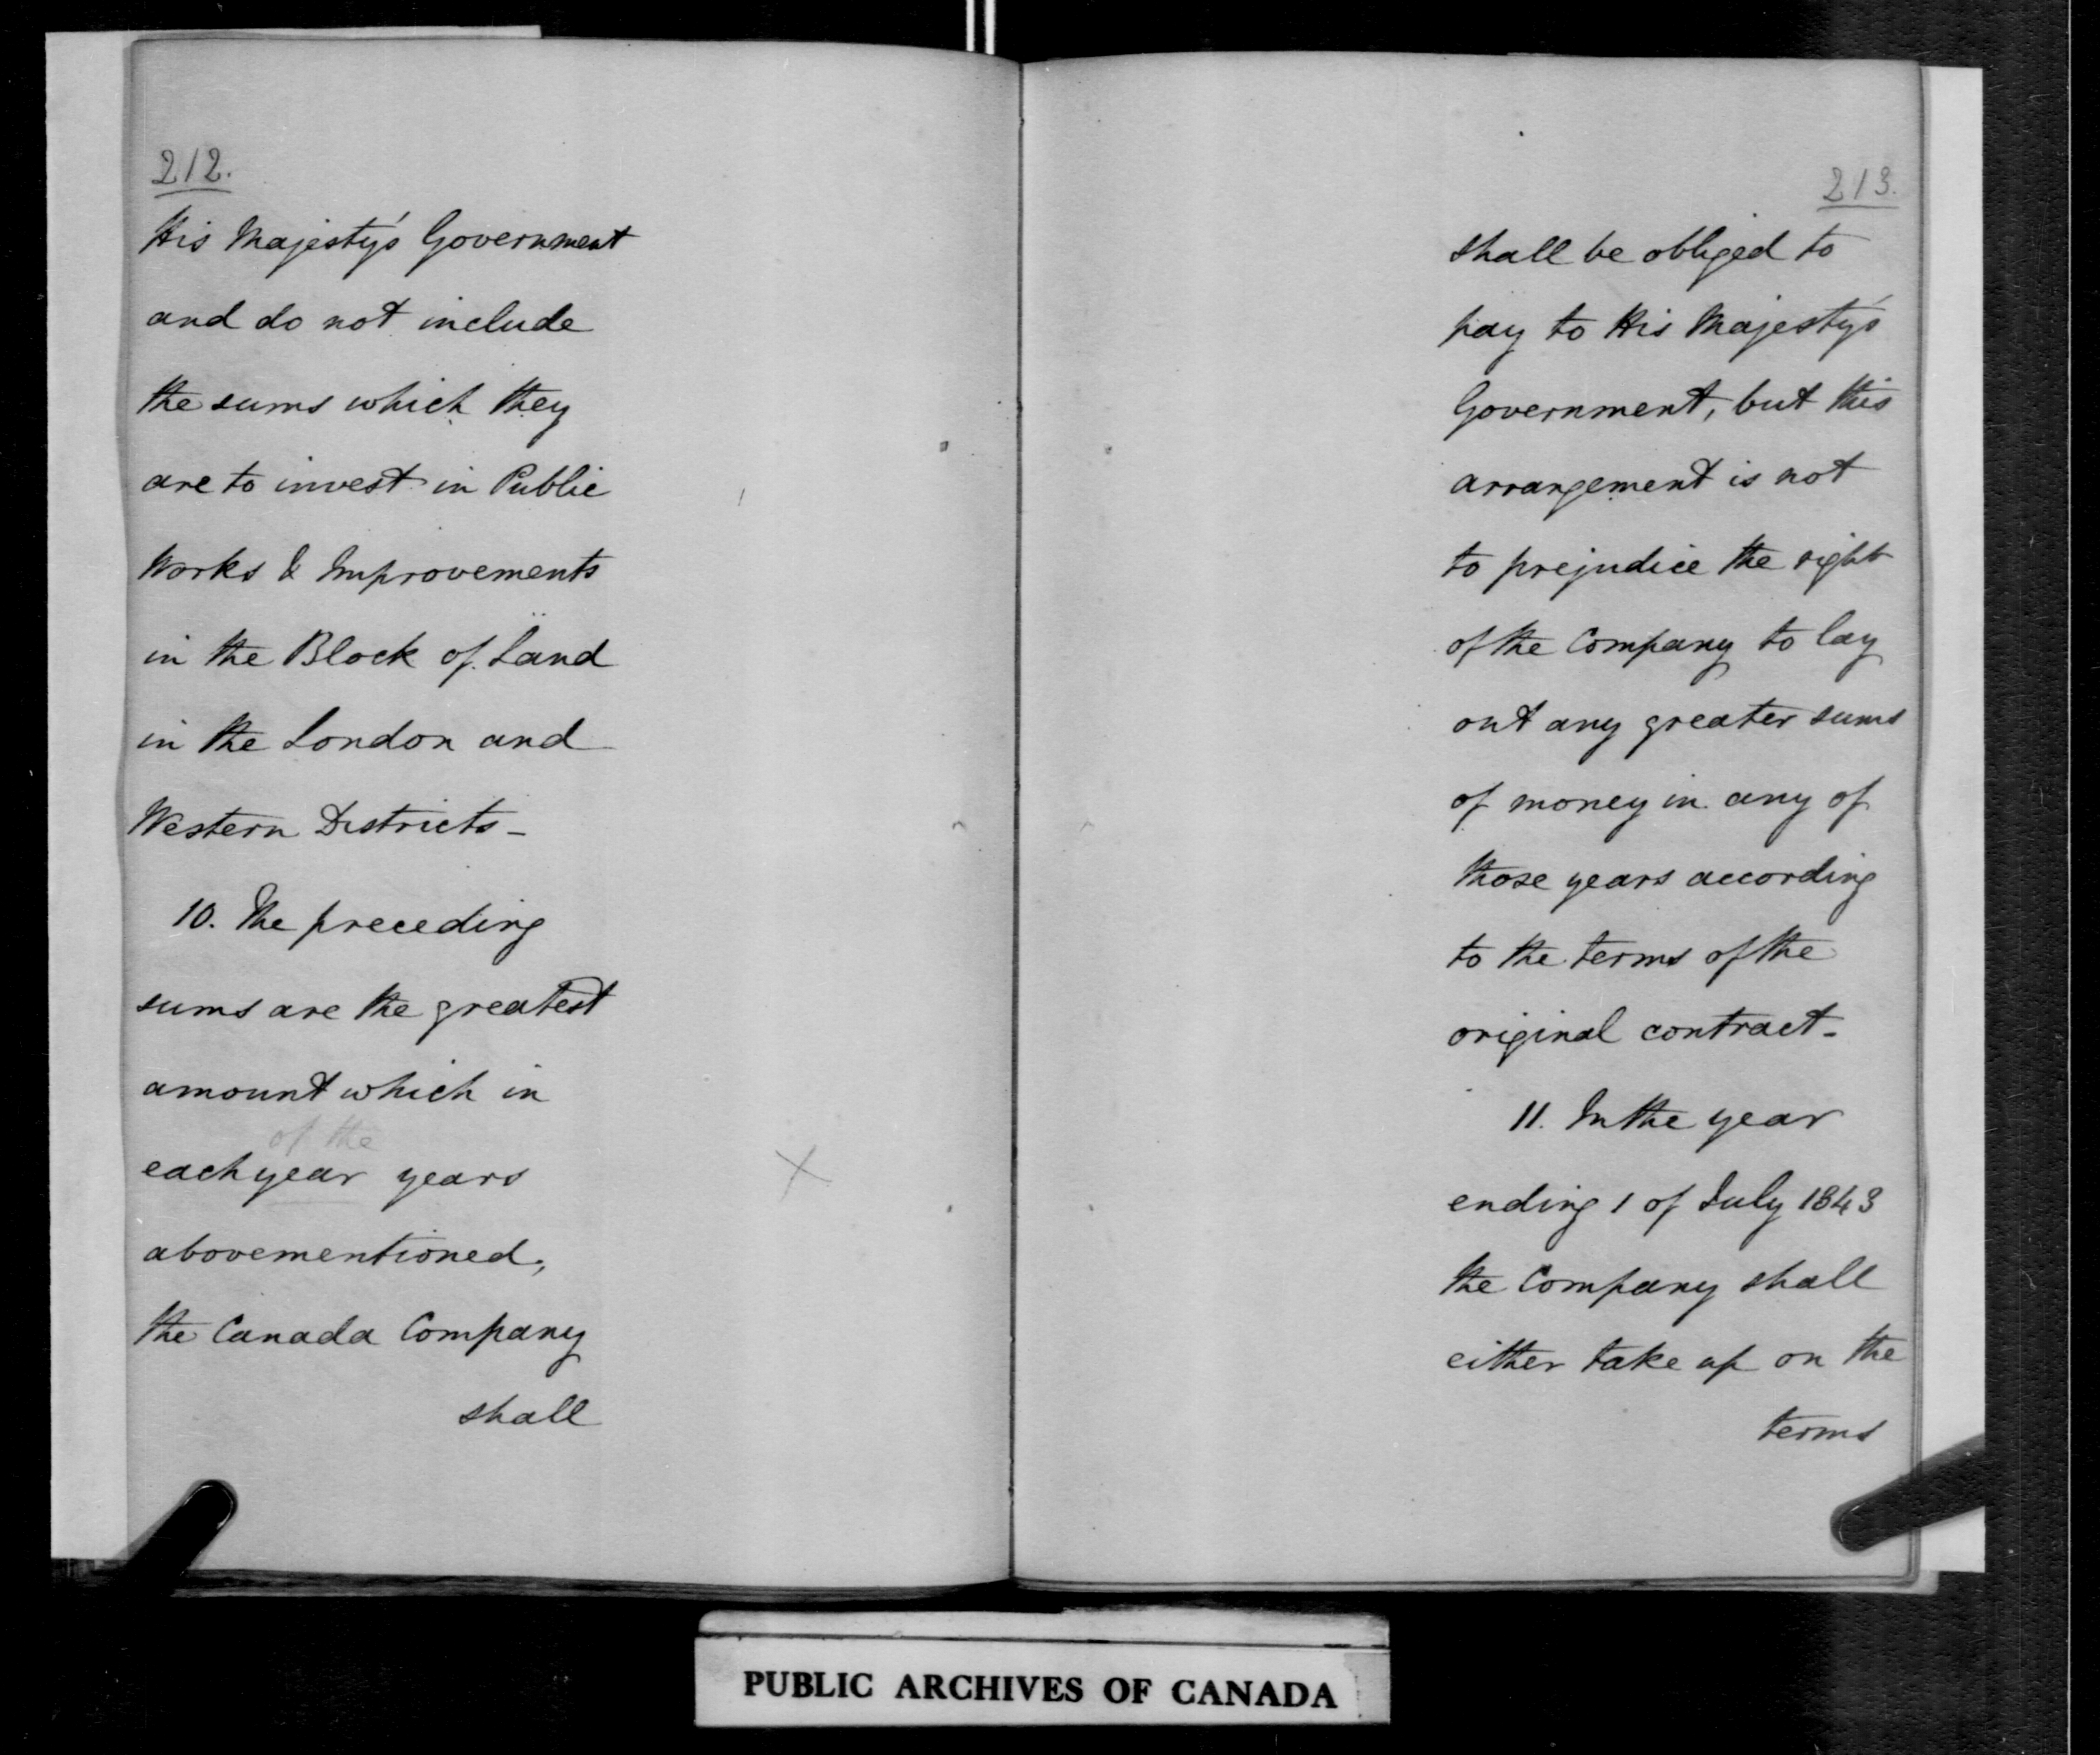 212.
His Majesty's Government
and do not include
the sums which they
are to invest in Public
Works & Improvements
in the Block of Land
in the London and
Western Districts -
10. The preceding
sums are the greatest
amount which in
of the
each year years
abovementioned,
the Canada Company
shall
213.
shall be obliged to
pay to His Majesty's
Government, but this
arrangement is not
to prejudice the right
of the Company to lay
out any greater sums
of money in any of
those years according
to the terms of the
original contract -
11. In the year
ending 1 of July 1843
the Company shall
either take up on the
terms
PUBLIC ARCHIVES OF CANADA